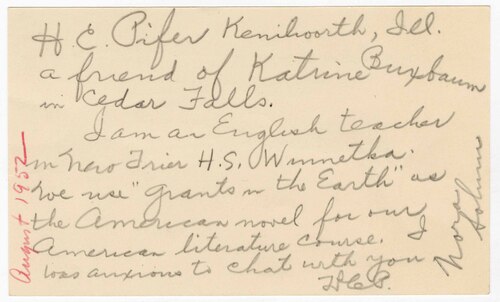 H. E. Pifer Kenilworth, Ill.
a friend of Katrine Buxbaum
in Cedar Falls.
I am an English teacher
in New Trier H.S. Winnetka.
We use "Giants in the Earth" as
the American novel for our
American literature course. I
was anxious to chat with you
H.E.P.
August 1952
Nora